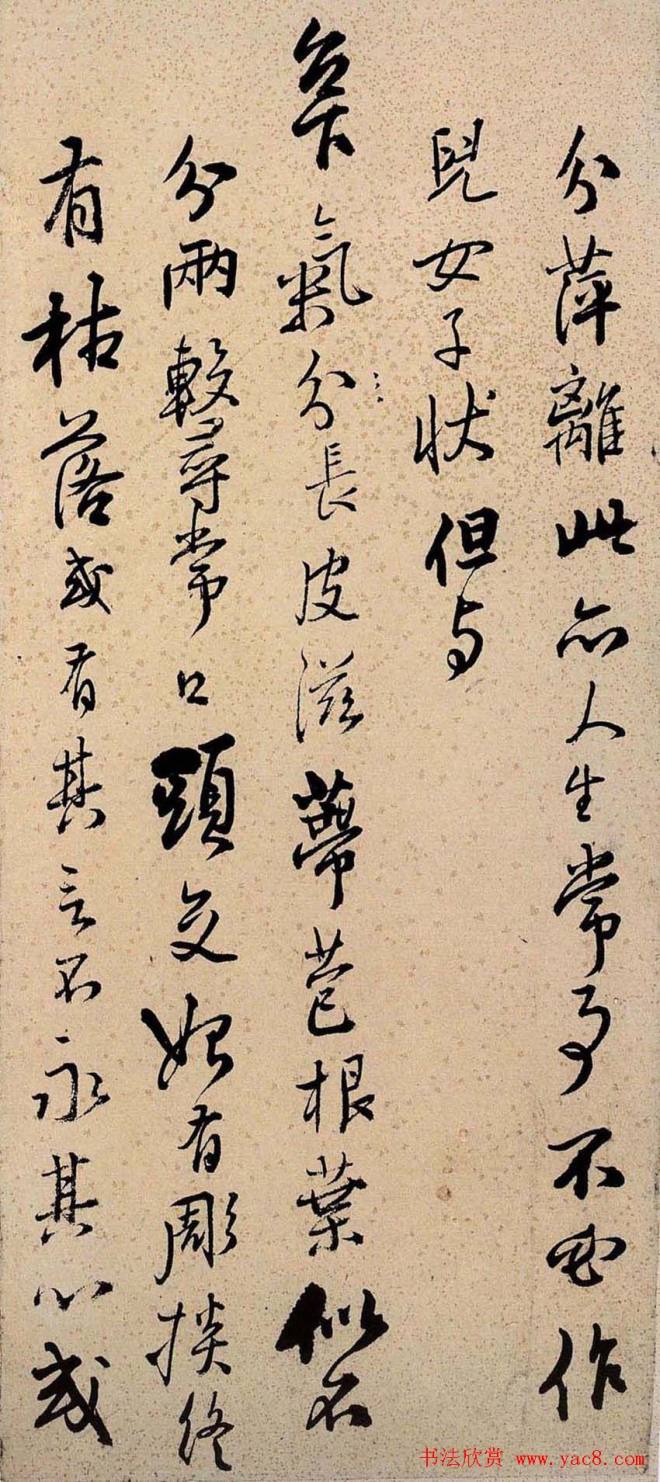 分萍離此亦人生常事不必作
兒女子状但与
台下氣分長皮滋薴苞根葉似不
分兩較尋常口頭交始有彫掞終
有枯落或有其言不永其心或
书法欣赏 www.yac8.com